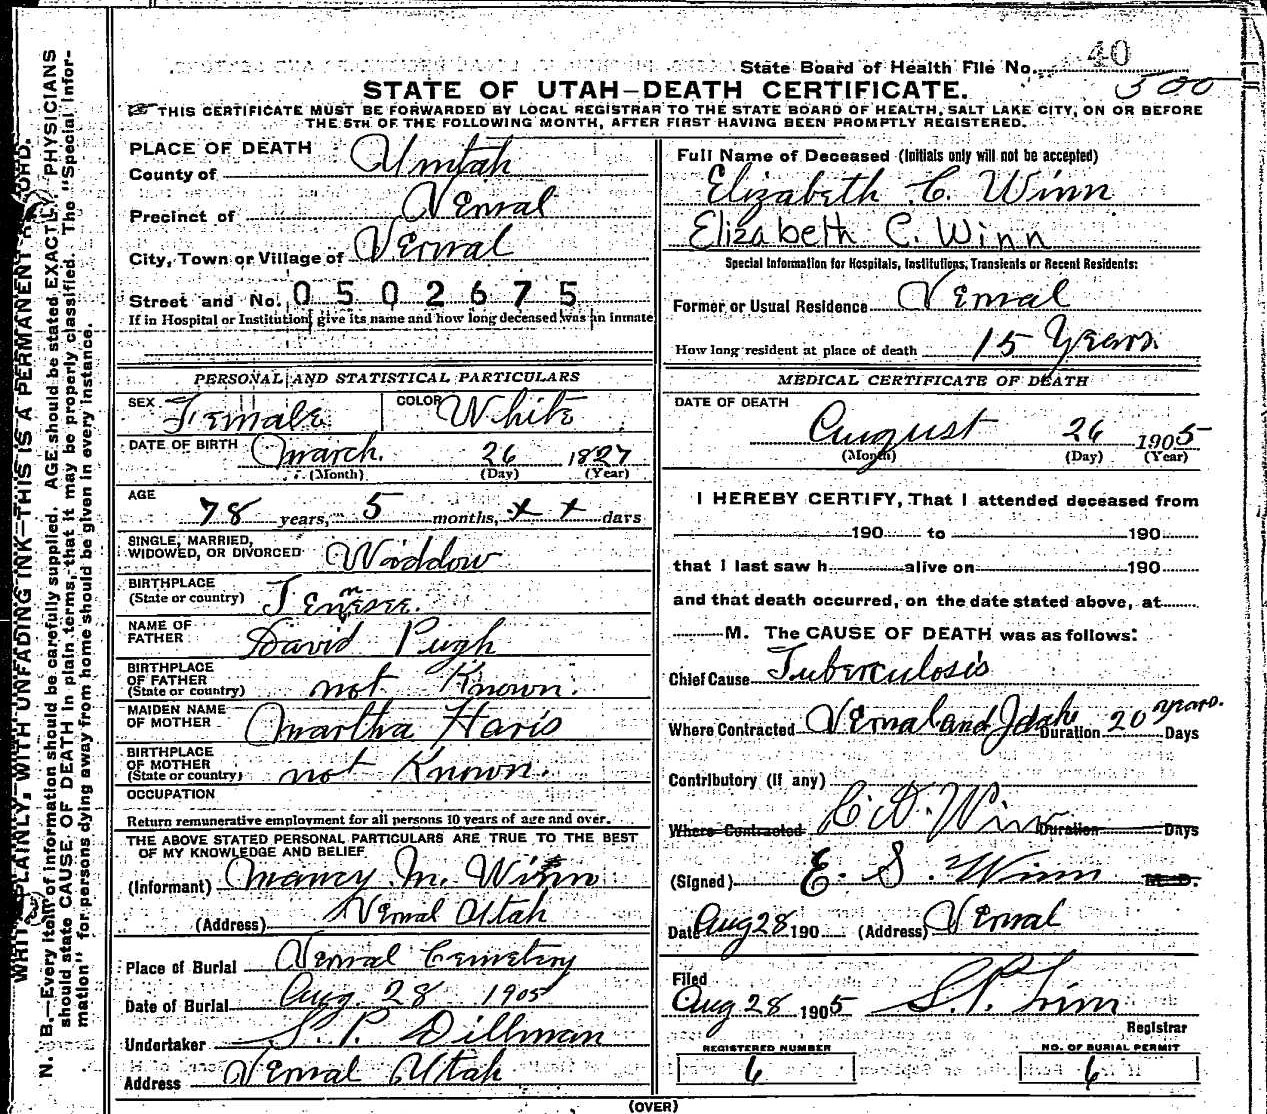 State Board of Health File No. 40
500
STATE OF UTAH—DEATH CERTIFICATE.
THIS CERTIFICATE MUST BE FORWARDED BY LOCAL REGISTRAR TO THE STATE BOARD OF HEALTH, SALT LAKE CITY, ON OR BEFORE
THE 5TH OF THE FOLLOWING MONTH, AFTER FIRST HAVING BEEN PROMPTLY REGISTERED.
PLACE OF DEATH
County of Uintah
Precinct of Vernal
City, Town or Village of Vernal
Street and No. 0502675
If in Hospital or Institution, give its name and how long deceased was an inmate
PERSONAL AND STATISTICAL PARTICULARS
SEX Female COLOR White
DATE OF BIRTH March 26 1827
(Month) (Day) (Year)
AGE
78 years, 5 months, x x days
SINGLE, MARRIED,
WIDOWED, OR DIVORCED Widdow
BIRTHPLACE
(State or country) Tennesee.
NAME OF
FATHER David Pugh
BIRTHPLACE
OF FATHER
(State or country) not Known.
MAIDEN NAME
OF MOTHER Martha Haris
BIRTHPLACE
OF MOTHER
(State or country) not Known.
OCCUPATION
Return remunerative employment for all persons 10 years of age and over.
THE ABOVE STATED PERSONAL PARTICULARS ARE TRUE TO THE BEST
OF MY KNOWLEDGE AND BELIEF
(Informant) Nancy M. Winn
(Address) Vernal Utah
Place of Burial Vernal Cemetery
Date of Burial Aug. 28 1905
Undertaker S. P. Dillman
Address Vernal Utah
Full Name of Deceased (Initials only will not be accepted)
Elizabeth C. Winn
Elizabeth C. Winn
Special Information for Hospitals, Institutions, Transients or Recent Residents:
Former or Usual Residence Vernal
How long resident at place of death 15 Years.
MEDICAL CERTIFICATE OF DEATH
DATE OF DEATH
August 26 1905
(Month) (Day) (Year)
I HEREBY CERTIFY, That I attended deceased from
190 to 190
that I last saw h alive on 190
and that death occurred, on the date stated above, at
M. The CAUSE OF DEATH was as follows:
Chief Cause Tuberculosis
Where Contracted Vernal and Idaho Duration 20 years. Days
Contributory (if any)
Where Contracted Winn Duration Days
(Signed) E. S. Winn M. D.
Date Aug 28 190 (Address) Vernal
Filed
Aug 28 1905
Registrar
REGISTERED NUMBER
6
NO. OF BURIAL PERMIT
6
(OVER)
WRITE PLAINLY, WITH UNFADING INK—THIS IS A PERMANENT RECORD.
N. B.—Every item of information should be carefully supplied. AGE should be stated EXACTLY. PHYSICIANS
should state CAUSE OF DEATH in plain terms, that it may be properly classified. The "Special Infor-
mation" for persons dying away from home should be given in every instance.